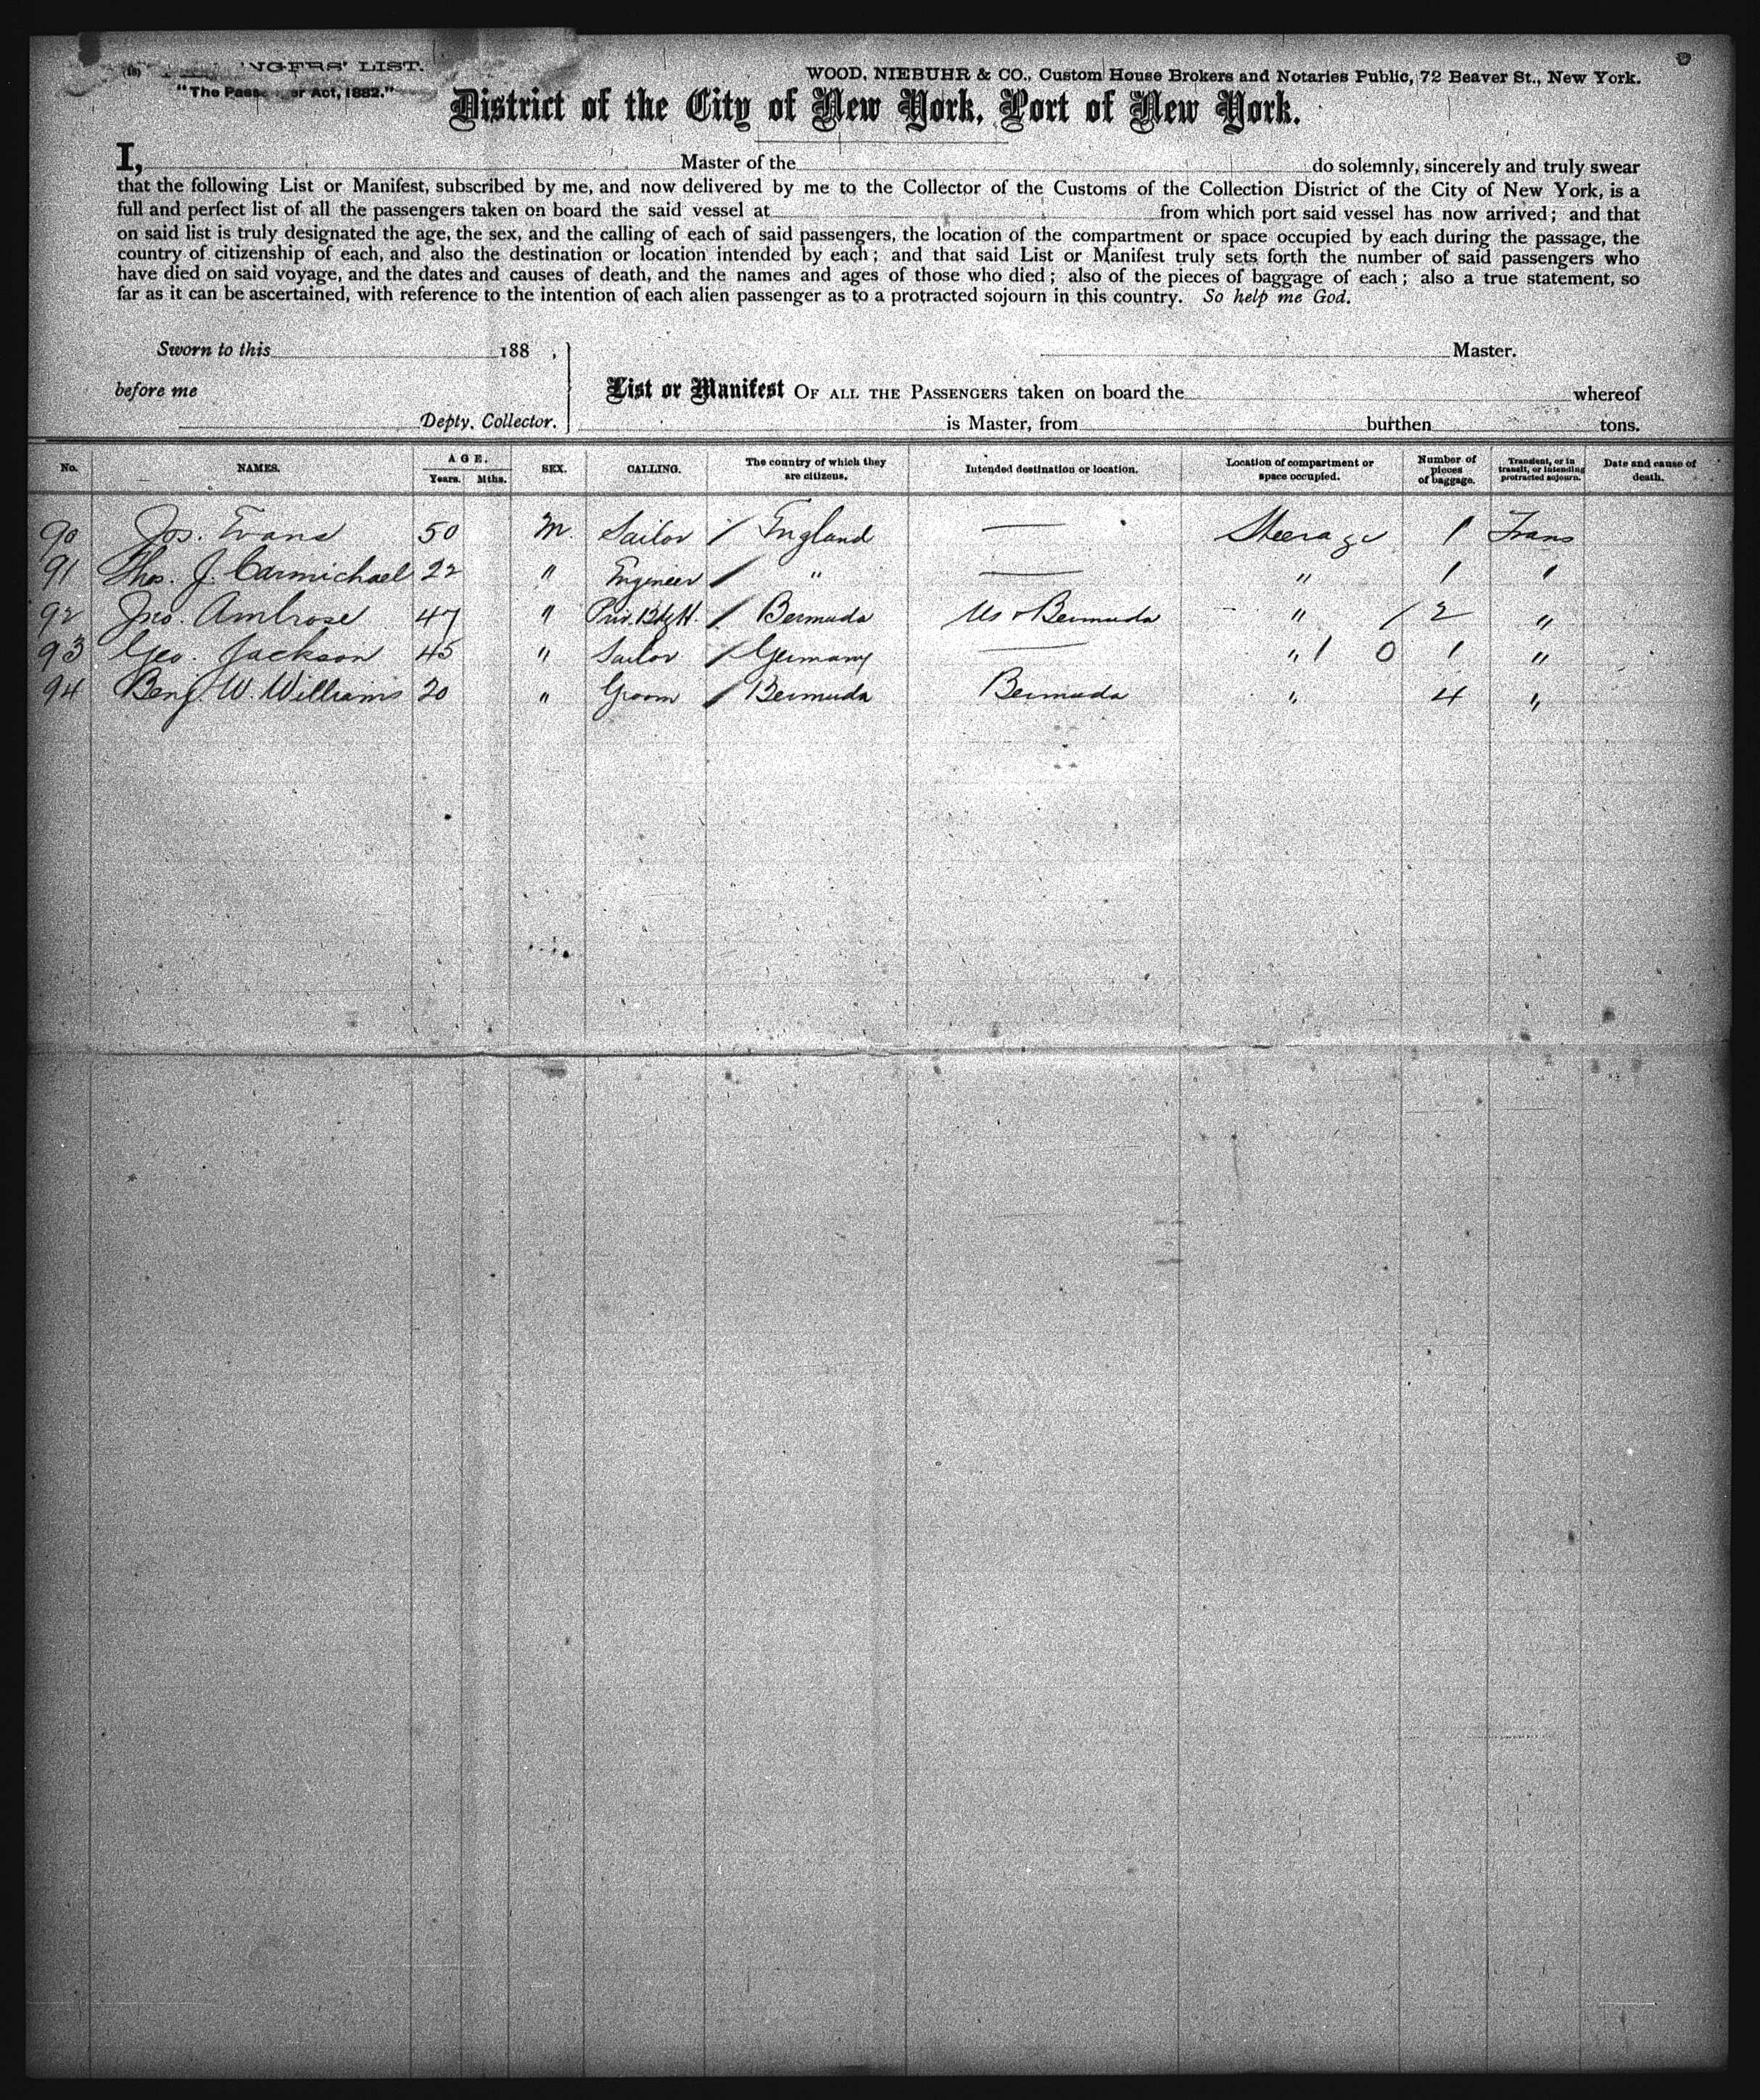 (18) NGERS' LIST.
"The Pass er Act, 1882."
WOOD, NIEBUHR & CO., Custom House Brokers and Notaries Public, 72 Beaver St., New York.
District of the City of New York, Port of New York.
I, Master of the do solemnly, sincerely and truly swear
that the following List or Manifest, subscribed by me, and now delivered by me to the Collector of the Customs of the Collection District of the City of New York, is a
full and perfect list of all the passengers taken on board the said vessel at from which port said vessel has now arrived; and that
on said list is truly designated the age, the sex, and the calling of each of said passengers, the location of the compartment or space occupied by each during the passage, the
country of citizenship of each, and also the destination or location intended by each; and that said List or Manifest truly sets forth the number of said passengers who
have died on said voyage, and the dates and causes of death, and the names and ages of those who died; also of the pieces of baggage of each; also a true statement, so
far as it can be ascertained, with reference to the intention of each alien passenger as to a protracted sojourn in this country. So help me God.
Sworn to this 188 , Master.
before me List or Manifest OF ALL THE PASSENGERS taken on board the whereof
Depty. Collector. is Master, from burthen tons.
No. NAMES. AGE. Years. Mths. SEX. CALLING. The country of which they are citizens. Intended destination or location. Location of compartment or space occupied. Number of pieces of baggage. Transient, or in transit, or intending protracted sojourn. Date and cause of death.
90 Jos. Evans 50 M. Sailor / England — Steerage 1 Trans
91 Thos. J. Carmichael 22 " Engineer / " — " 1 "
92 Jno. Ambrose 47 " / Bermuda US & Bermuda " / 2 "
93 Geo. Jackson 45 " Sailor / Germany — " 1 0 1 "
94 Benj. W. Williams 20 " Groom / Bermuda Bermuda " 4 "